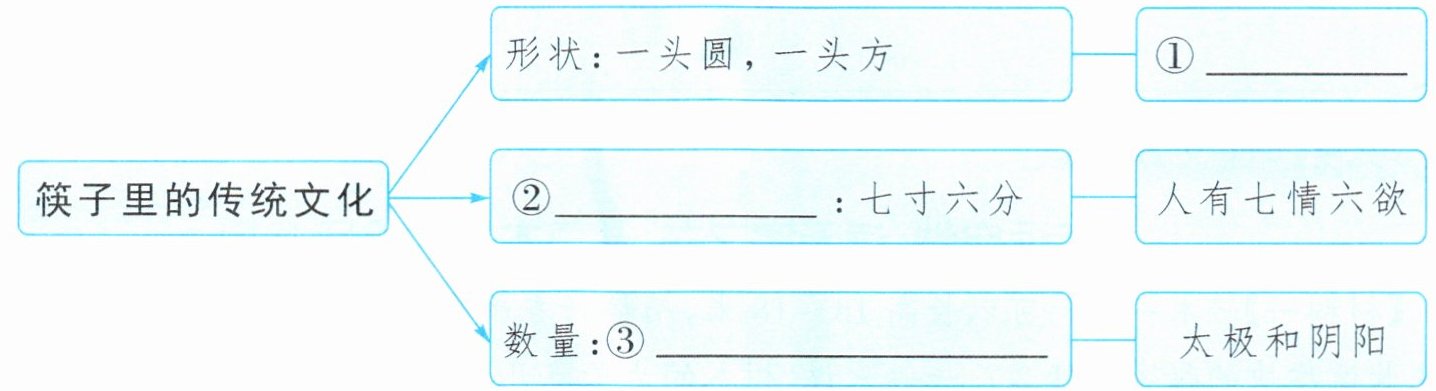 形状：一头圆，一头方
①
筷子里的传统文化
②：七寸六分
人有七情六欲
数量：③
太极和阴阳